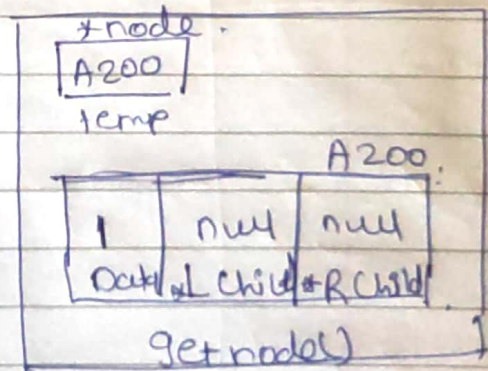 *node.
A200
temp
A200.
1 null null
Data *L Child *R Child
getnode()